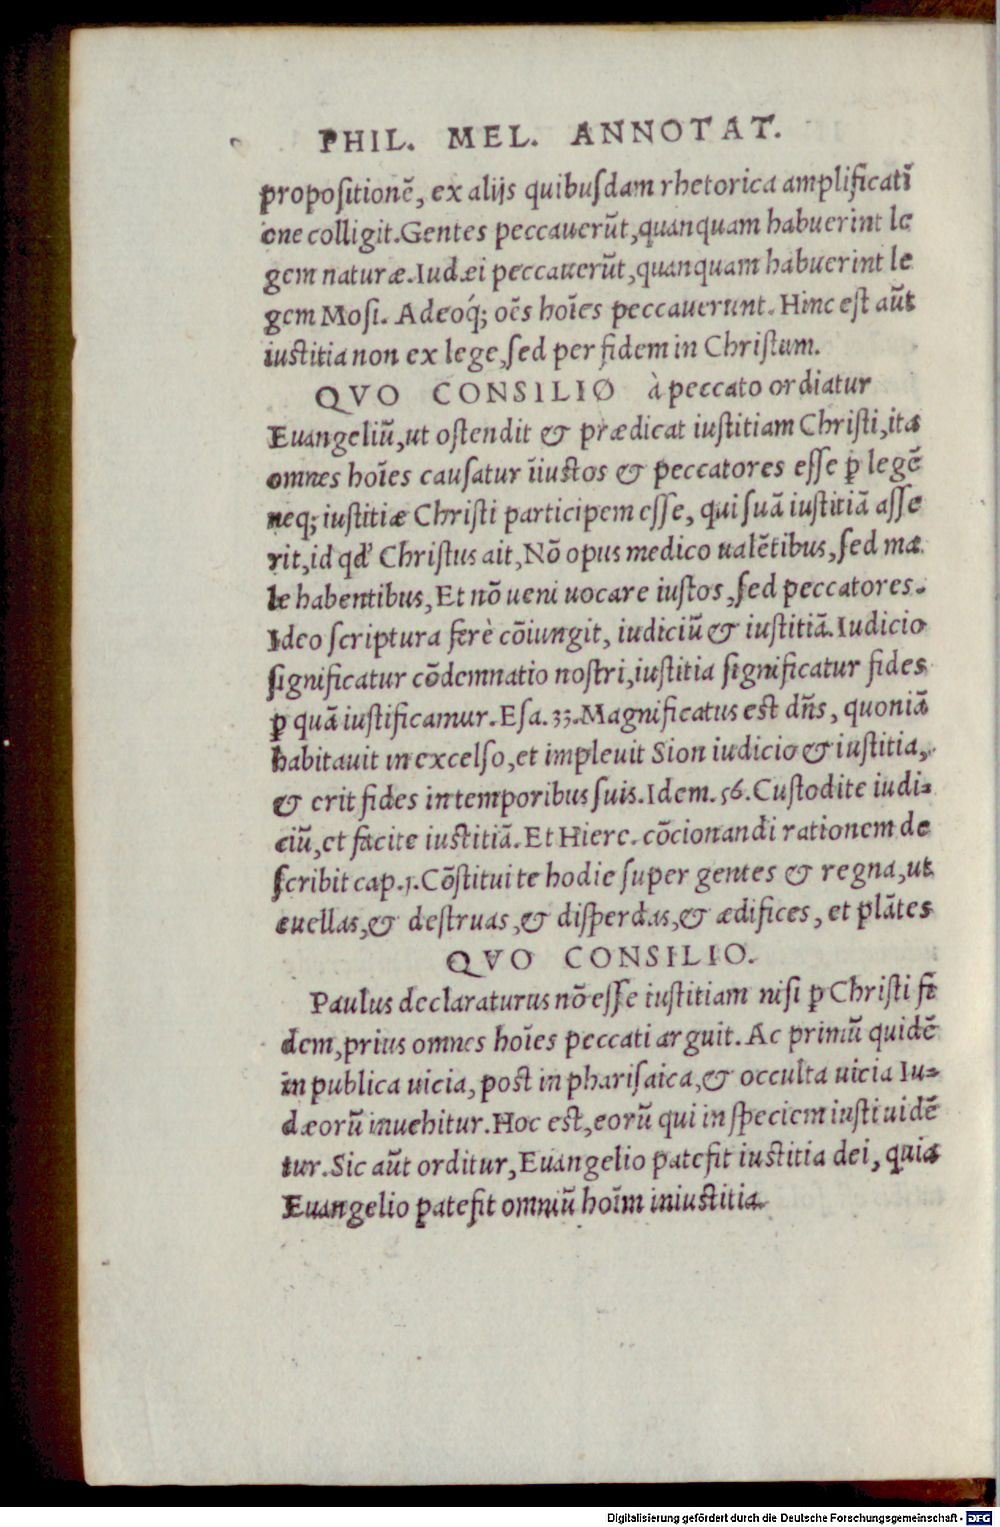 PHIL. MEL. ANNOTAT.
propoſitionē, ex alijs quibuſdam rhetorica amplificati
one colligit. Gentes peccauerūt, quanquam habuerint le
gem naturæ. Iudæi peccauerūt, quanquam habuerint le
gem Moſi. Adeoq́; oēs hoīes peccauerunt. Hinc eſt aūt
iuſtitia non ex lege, ſed per fidem in Chriſtum.
QVO CONSILIO à peccato ordiatur
Euangeliū, ut oſtendit & prædicat iuſtitiam Chriſti, ita
omnes hoīes cauſatur īiuſtos & peccatores eſſe ꝑ legē
neq; iuſtitiæ Chriſti participem eſſe, qui ſuā iuſtitiā aſſe
rit, id qd' Chriſtus ait, Nō opus medico ualētibus, ſed ma
le habentibus, Et nō ueni uocare iuſtos, ſed peccatores.
Ideo ſcriptura ferè cōiungit, iudiciū & iuſtitiā. Iudicio
ſignificatur cōdemnatio noſtri, iuſtitia ſignificatur fides
ꝑ quā iuſtificamur. Eſa. 33. Magnificatus est dn̄s, quoniā
habitauit in excelſo, et impleuit Sion iudicio & iuſtitia,
& erit fides in temporibus ſuis. Idem. 56. Cuſtodite iudi⸗
ciū, et facite iuſtitiā. Et Hiere. cōcionandi rationem de
ſcribit cap. 1. Cōſtitui te hodie ſuper gentes & regna, ut
euellas, & deſtruas, & diſperdas, & ædifices, et plātes
QVO CONSILIO.
Paulus declaraturus nō eſſe iuſtitiam niſi ꝑ Chriſti fi
dem, prius omnes hoīes peccati arguit. Ac primū quidē
in publica uicia, poſt in phariſaica, & occulta uicia Iu⸗
dæorū inuehitur. Hoc est, eorū qui in ſpeciem iuſti uidē
tur. Sic aūt orditur, Euangelio patefit iuſtitia dei, quia
Euangelio patefit omniū hoīm iniuſtitia.
Digitalisierung gefördert durch die Deutsche Forschungsgemeinschaft - DFG